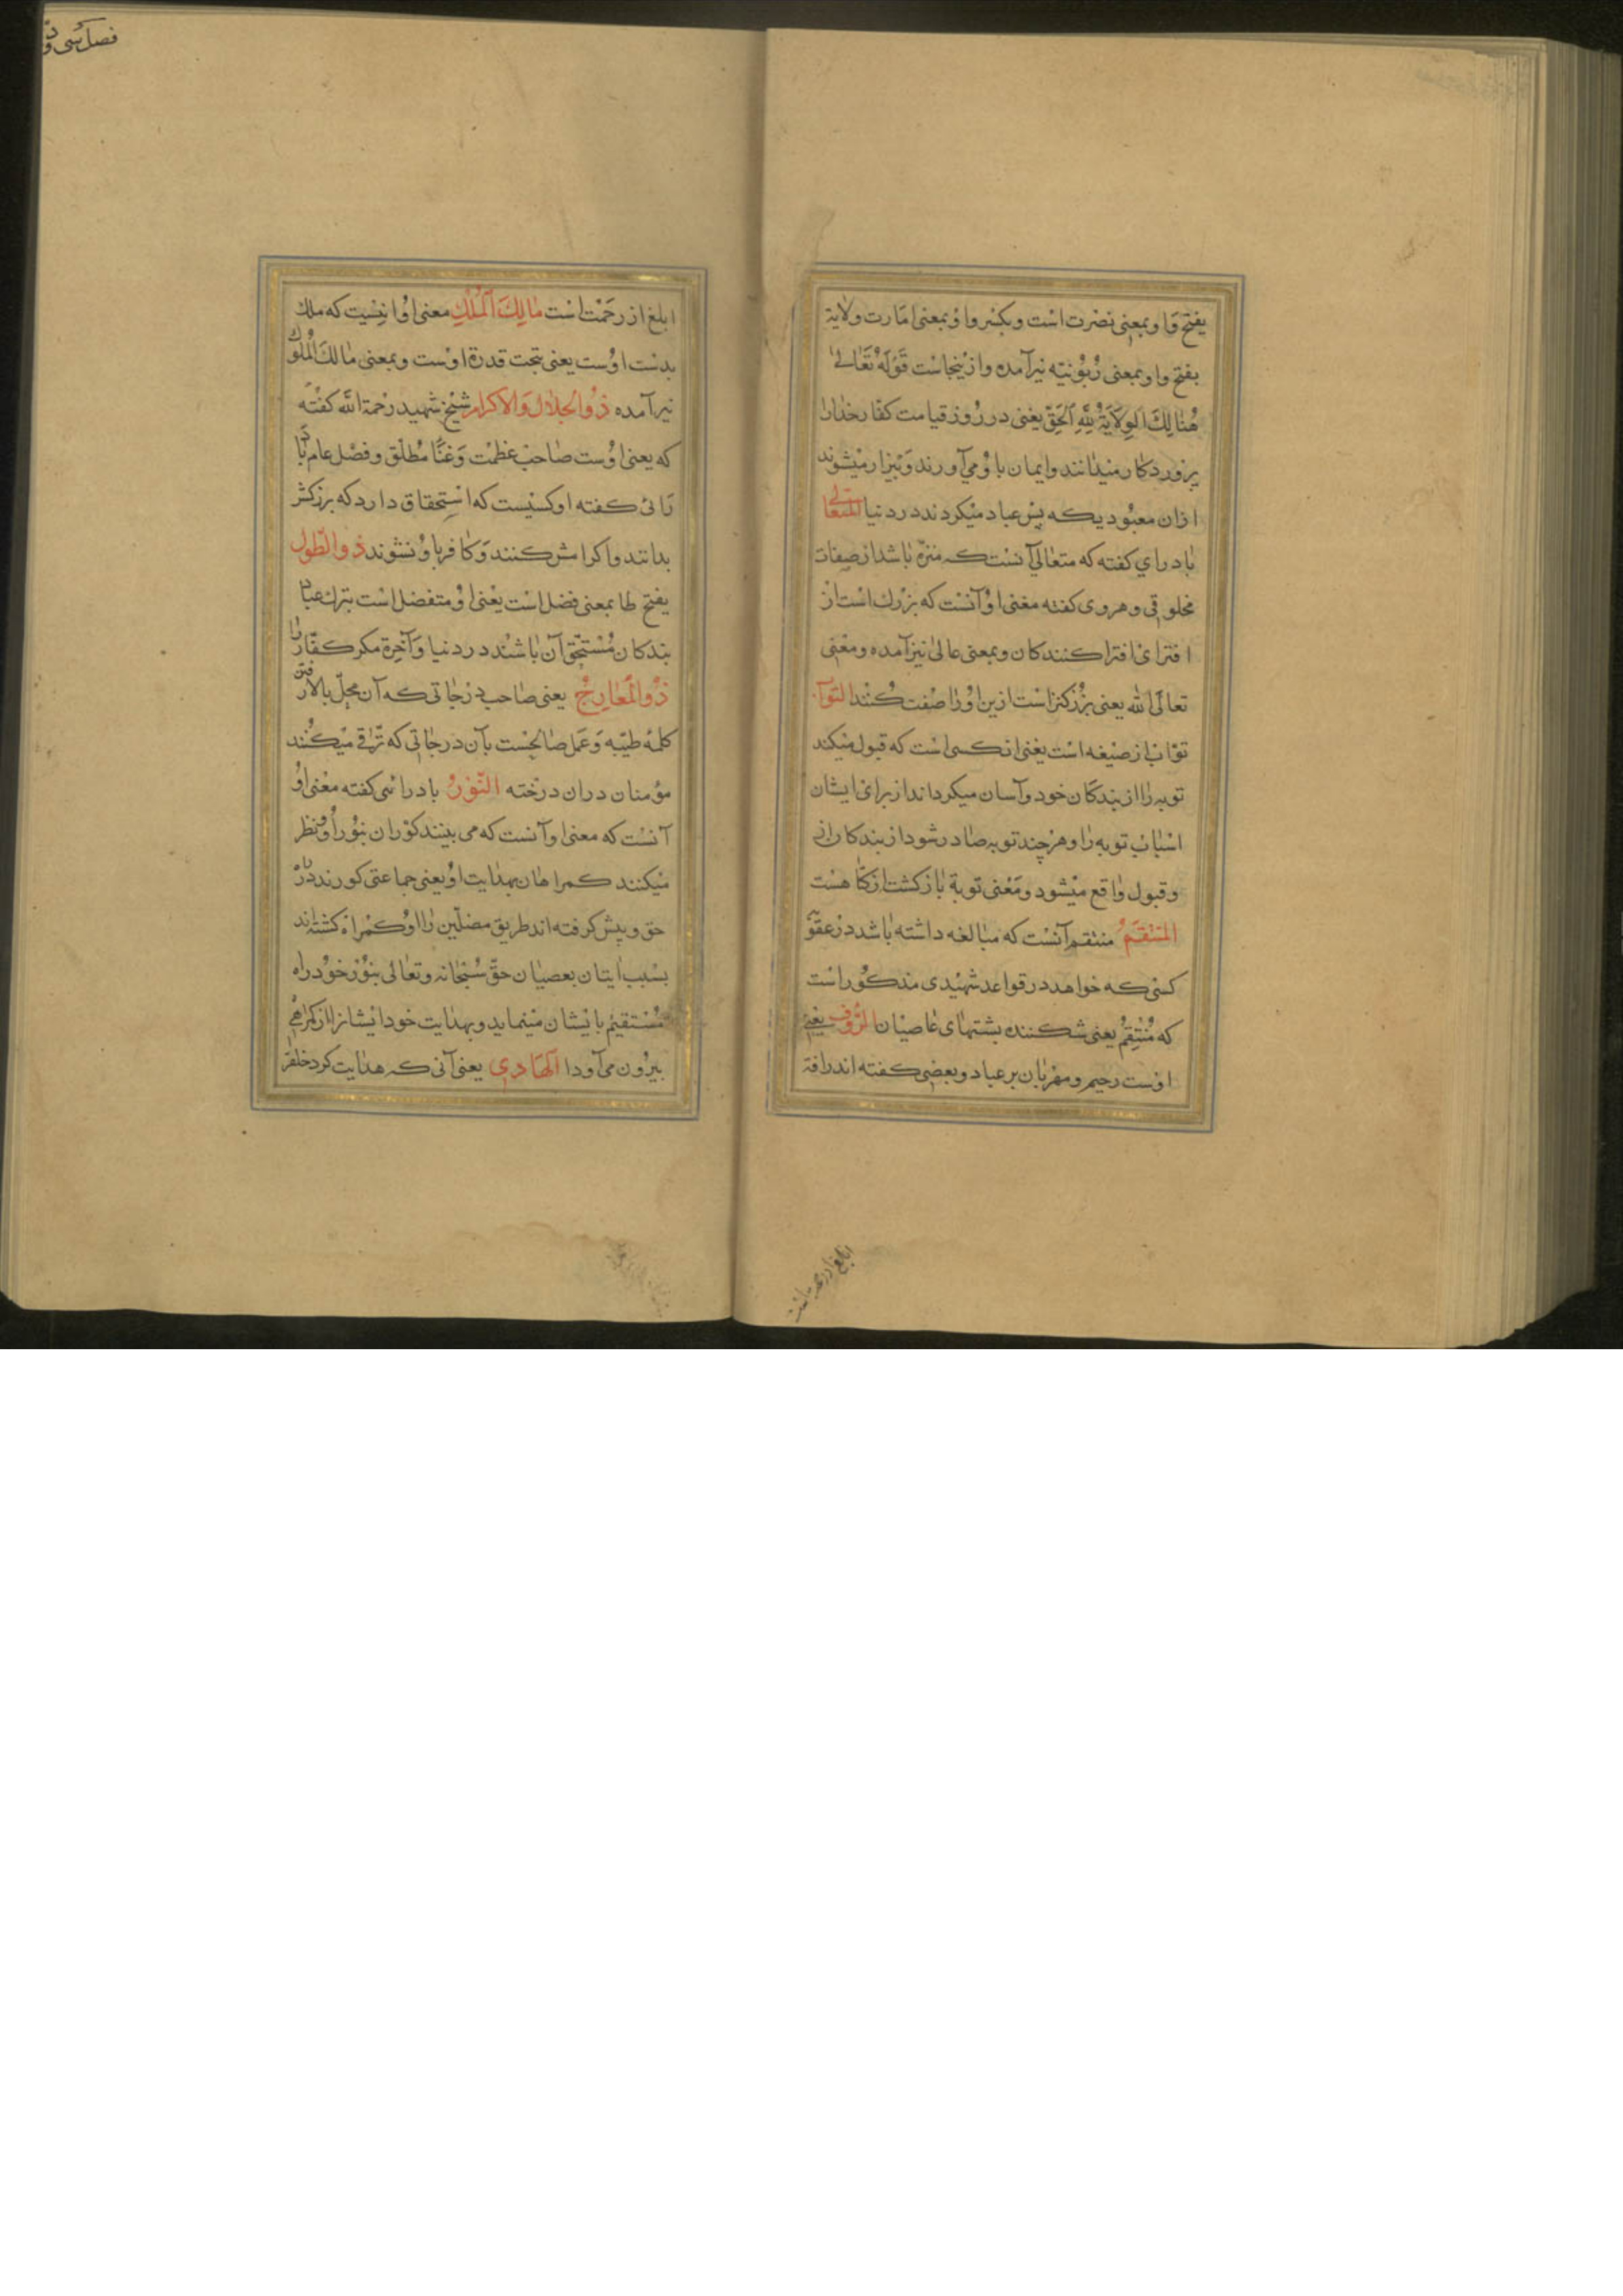 یفتح واو بمعنی نصرت است و بکسر واو بمعنی امارت ولایة
بفتح واو بمعنی ربوبیته نیز آمده و ازینجاست قَوْلُهُ تَعَالىٰ
هُنَالِكَ الْوِلَايَةُ لِلّٰهِ الْحَقِّ یعنی در روز قیامت کفار خدارا
پروردکار میدانند و ایمان باو می آورند و بیزار میشوند
ازان معبودیکه پس عباد میکردند در دنیا المتعالی
بادرای کفته که متعالی آنست که منزه باشد از صفات
مخلوقی و هروی کفته معنی او آنست که بزرك است از
افترای افترا کنندکان و بمعنی عالی نیز آمده و معنی
تعالی الله یعنی بزرکتر است ازین او را صفت کنند التواب
تواب از صیغه است یعنی انکسی است که قبول میکند
توبه را از بندکان خود و آسان میکرداند از برای ایشان
اسباب توبه را و هرچند توبه صادر شود از بندکان از
و قبول واقع میشود و معنی توبة بازکشت از کناهست
المنتقم منتقم آنست که مبالغه داشته باشد در عقوبة
کسی که خواهد در قواعد شهیدی مذکور است
که مُنْتَقِمُ یعنی شکننده بشتهای عاصیان الرؤف یعنی
اوست رحیم و مهربان بر عباد و بعضی کفته اند رافة
ابلغ از رحمت است
فصل سی و
ابلغ از رحمت است مَالِكَ الْمُلْكِ معنی او اینست که ملك
بدست اوست یعنی تحت قدرة اوست و بمعنی مالك الملوك
نیز آمده ذُوالجلال والاکرام شیخ شهید رحمة الله کفته
که یعنی اوست صاحب عظمت و غنا مطلق و فضل عام باد
رائی کفته او کسیست که استحقاق دارد که بزرکش
بدانند و اکرامش کنند و کافر باو نشوند ذوالطول
یفتح طا بمعنی فضل است یعنی او متفضل است بترك عباد
بندکان مستحق آن باشند در دنیا و آخرة مکر کفار را
ذُوالْمَعَارِجُ یعنی صاحب درجاتی که آن محل بالا رفتن
کلمه طیبه و عمل صالحست بآن درجاتی که ترقی میکنند
مؤمنان دران درخته النّورُ بادرائی کفته معنی او
آنست که معنی او آنست که می بینند کوران بنور او و نظر
میکنند کمراهان بهدایت او یعنی جماعتی کورند در راه
حق و پیش کرفته اند طریق مضلین را او کمراه کشته اند
بسبب ایتان بعصیان حق سُبْحَانَه وتعالی بنور خود راه
مستقیم بایشان مینماید و بهدایت خود ایشان را از کمراهی
بیرون می آودا اَلْهَادِی یعنی آنی که هدایت کرد خلق را